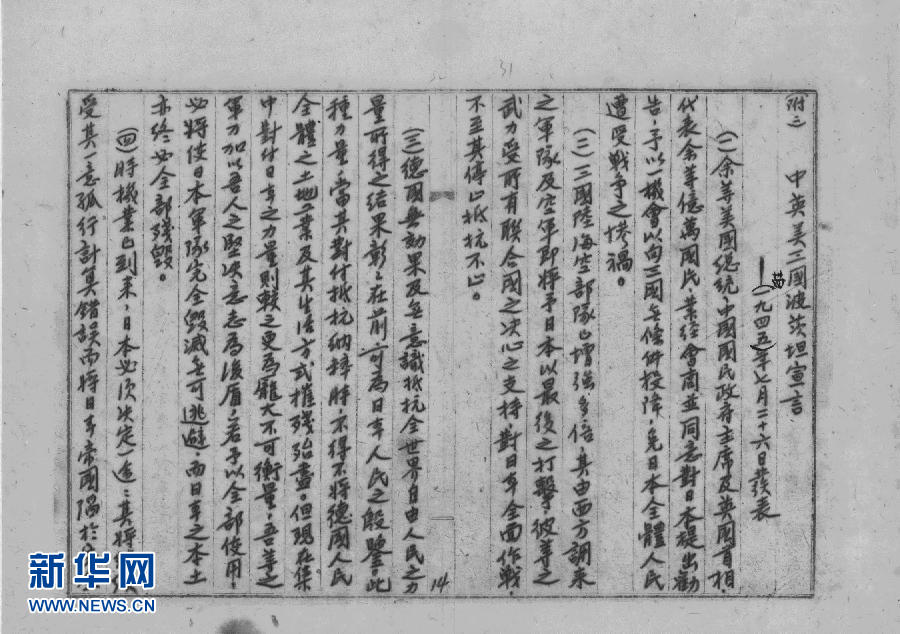 附二　中英美三國波茨坦宣言
（一九四五年七月二十六日發表
（一）余等美國總統、中國國民政府主席及英國首相、
代表余等億萬國民業經會商並同意對日本提出勸
告、予以一機會以向三國無條件投降、免日本全體人民
遭受戰爭之慘禍。
（二）三國陸海空部隊已增強多倍、其由西方調來
之軍隊及空軍即將予日本以最後之打擊、彼等之
武力受所有聯合國之決心之支持、對日本全面作戰、
不至其停止抵抗不止。
（三）德國無効果及無意識抵抗全世界自由人民之力
量所得之結果彰彰在前、可為日本人民之殷鑒、此
種力量、當其對付抵抗納粹時、不得不將德國人民
全體之土地工業及其生活方式摧殘殆盡。但現在集
中對付日本之力量則較之更為龐大不可衡量、吾等之
軍力加以吾人之堅決意志為後盾、若予以全部使用、
必將使日本軍隊完全毀滅無可逃避、而日本之本土
亦終必全部殘毀。
（四）時機業已到來、日本必須決定一途：其將
受其一意孤行計算錯誤而將日本帝國陷於
31
14
新华网
WWW.NEWS.CN